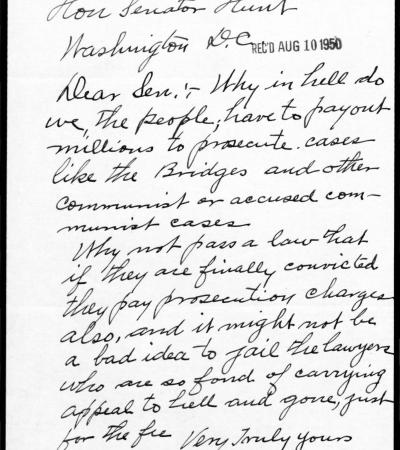 Hon Senator Hunt
Washington D.C. REC'D AUG 10 1950
Dear Sen.:- Why in hell do
we, "the people, have to pay out
millions to prosecute cases
like the Bridges and other
communist or accused com-
munist cases
Why not pass a law that
if they are finally convicted
they pay prosecution charges
also, and it might not be
a bad idea to jail the lawyers
who are so fond of carrying
appeal to hell and gone, just
for the fee Very Truly yours